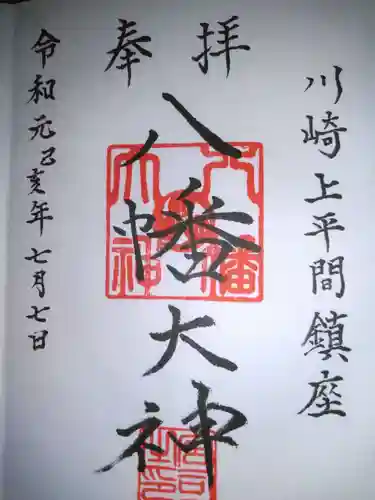 奉拝
川崎上平間鎮座
八幡大神
令和元乙亥年七月七日
八幡大神